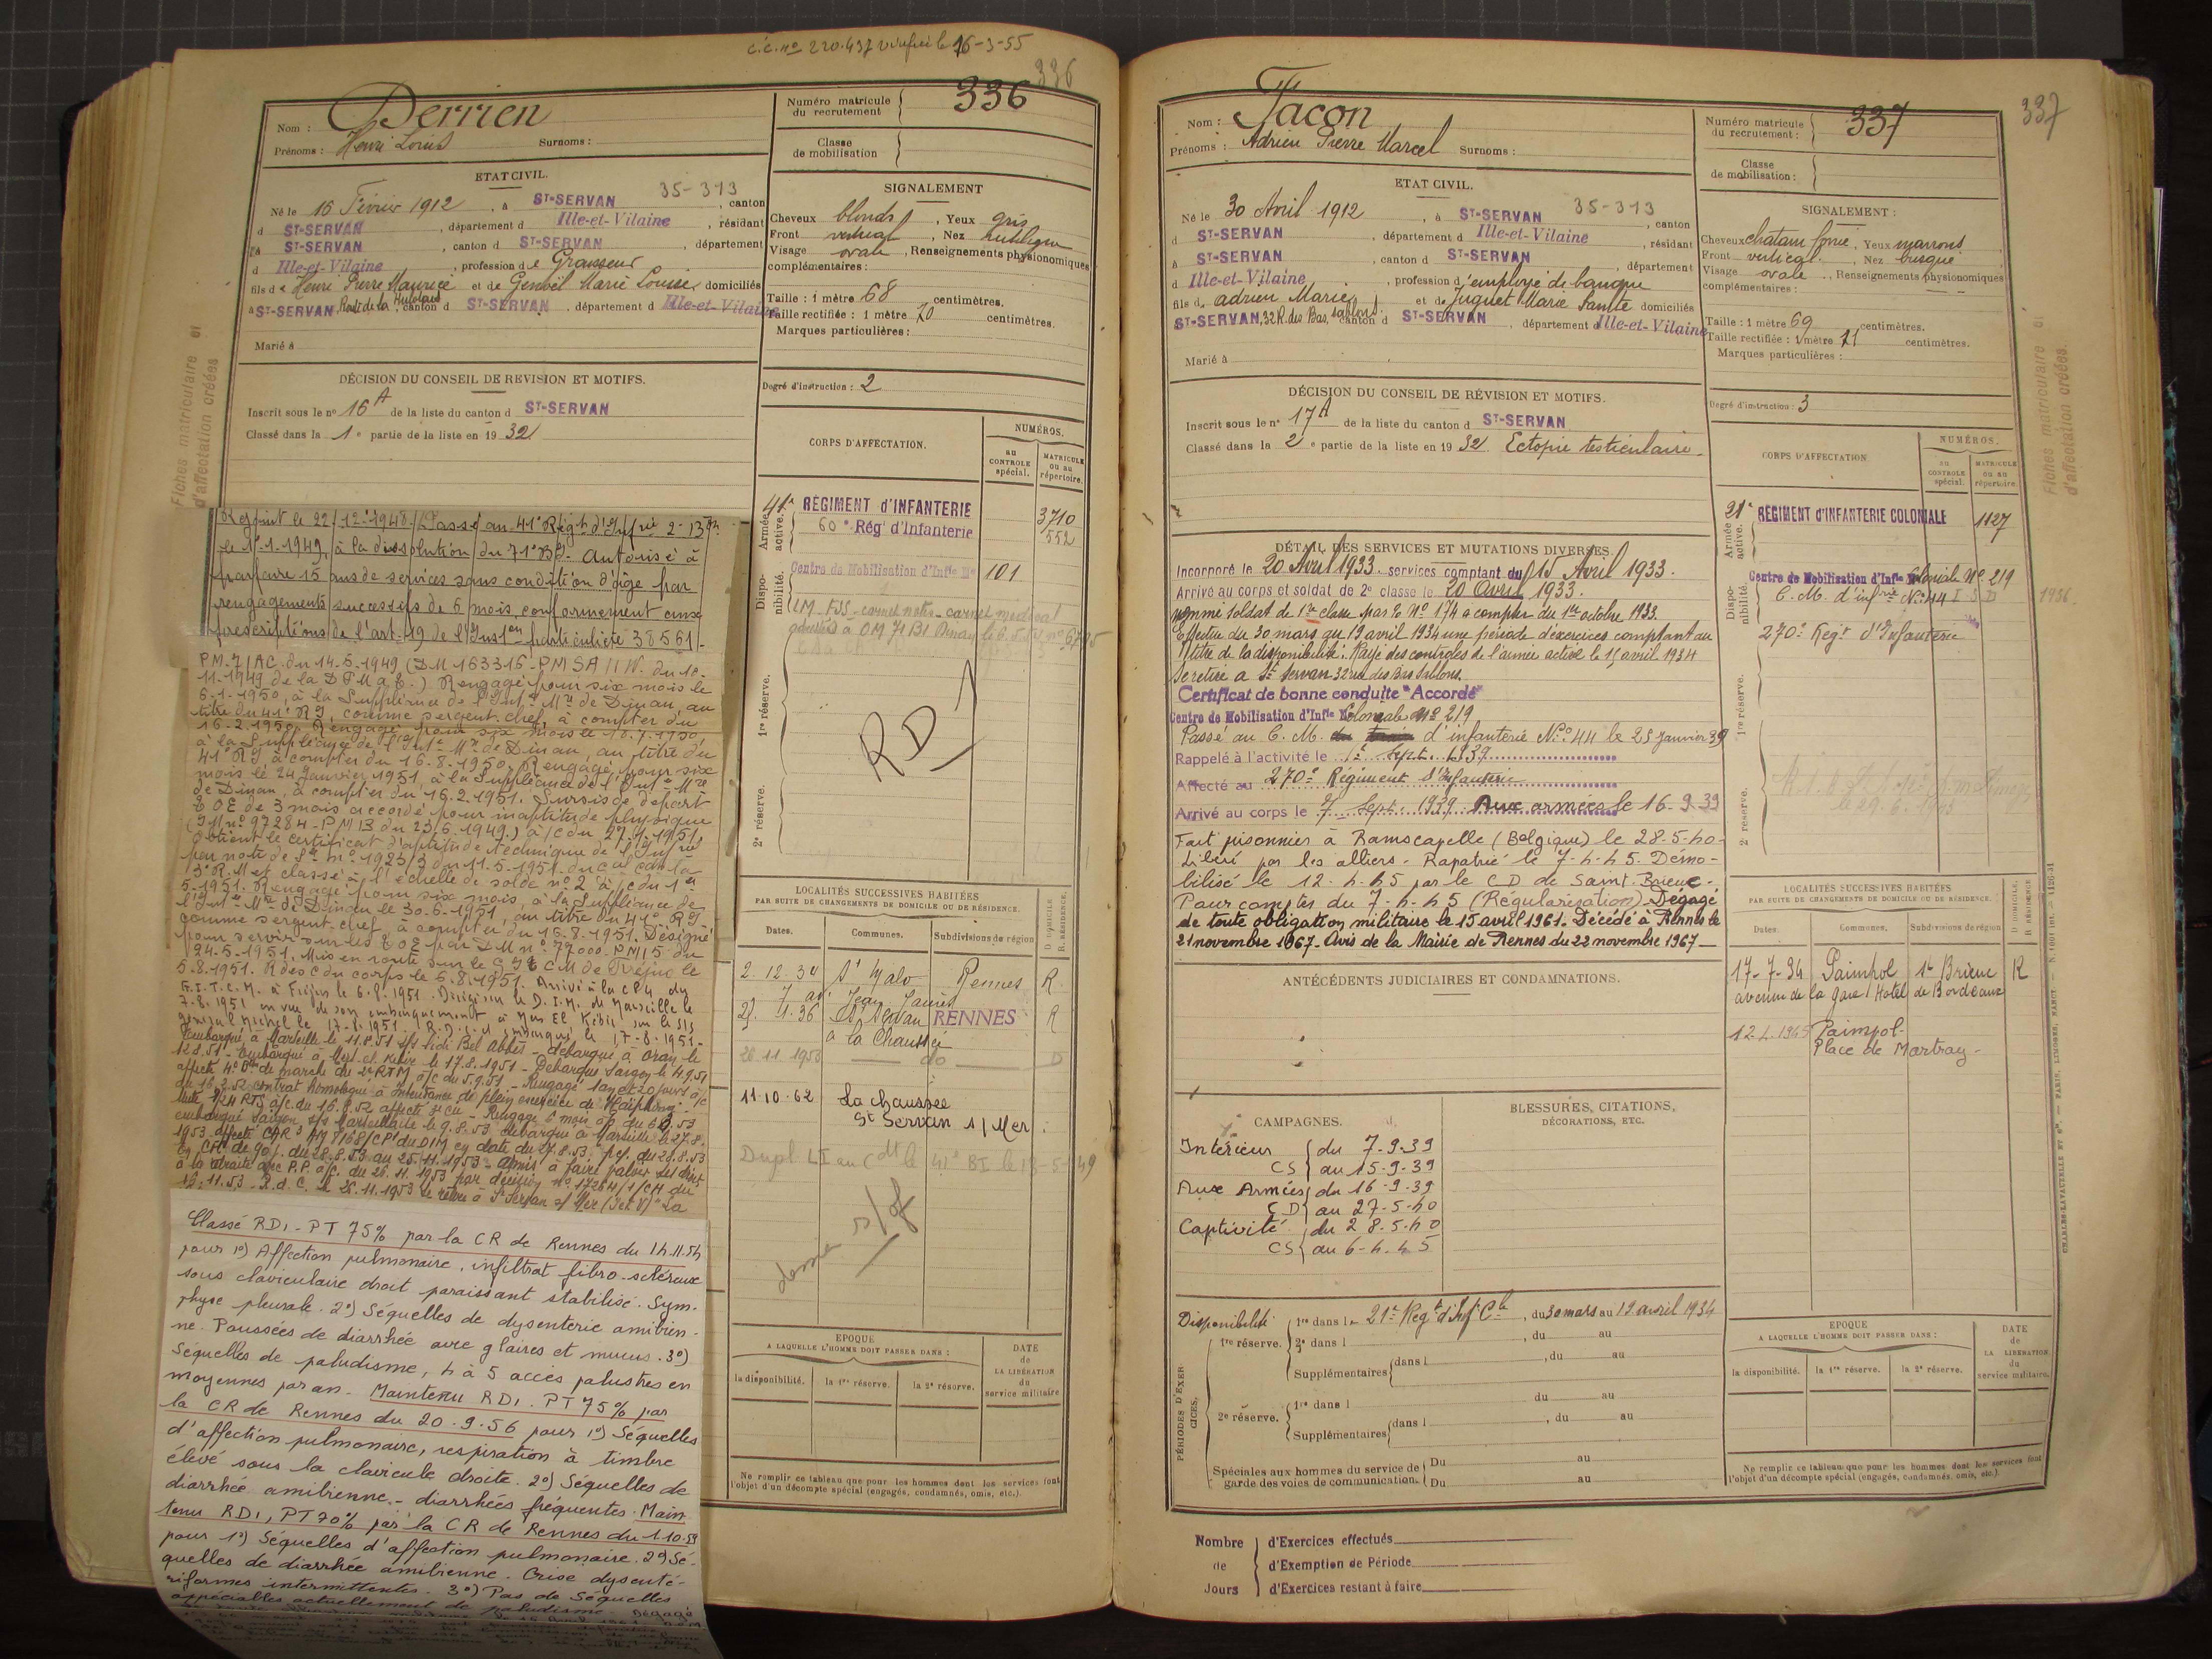 c.c. no 220.437 le 16-3-55
336
Nom : Derrien
Prénoms : Henri Louis Surnoms :
Numéro matricule du recrutement 336
Classe de mobilisation
ETAT CIVIL.
35-313
Né le 16 Février 1912, à ST-SERVAN, canton
d ST-SERVAN, département d Ille-et-Vilaine, résidant
à ST-SERVAN, canton d ST-SERVAN, département
d Ille-et-Vilaine, profession de Graisseur
fils de Henri Pierre Maurice et de Genoël Marie Louise domiciliés
à ST-SERVAN, Rue de la canton d ST-SERVAN, département d Ille-et-Vilaine
Marié à
SIGNALEMENT
Cheveux blonds, Yeux gris
Front vertical, Nez rectiligne
Visage ovale, Renseignements physionomiques
complémentaires :
Taille : 1 mètre 68 centimètres.
Taille rectifiée : 1 mètre 70 centimètres.
Marques particulières :
Degré d'instruction : 2
DÉCISION DU CONSEIL DE REVISION ET MOTIFS.
Inscrit sous le no 16 A de la liste du canton d ST-SERVAN
Classé dans la 1e partie de la liste en 1932
Fiches matriculaire et
d'affectation créées
CORPS D'AFFECTATION.
NUMÉROS.
au CONTROLE spécial.
MATRICULE ou au répertoire.
Armée active.
41e RÉGIMENT d'INFANTERIE 3710
60e Rég d'Infanterie 552
Disponibilité.
Centre de Mobilisation d'Infie No 101
1re réserve.
RD1
2e réserve.
Rejoint le 22-12-1948. Passé au 41e Régt d'Infrie 2e Bon
le 1-1-1949, à la dissolution du 71e BI. Autorisé à
parfaire 15 ans de services sans condition d'âge par
rengagements successifs de 6 mois conformément aux
prescriptions de l'art. 19 de l'Inston particulière 38561/-
PM-7/AC. du 14-5-1949 (DM 163315-PMSA 11 W. du 10-
11-1949 de la ) Rengagé pour six mois le
6-1-1950, à la Suppléance de l'Intce Mre de Dinan, au
titre du 41e RI, comme sergent-chef, à compter du
16-2-1950. Rengagé pour six mois le 18.7.1950,
à la Suppléance de l'Intce Mre de Dinan, au titre du
41e RI à compter du 16-8-1950. Rengagé pour six
mois le 24 Janvier 1951, à la Suppléance de l'Intce Mre
de Dinan, à compter du 16.2.1951. Sursis de départ
TOE de 3 mois accordé pour inaptitude physique
(IM no 97284-PM1B du 23.6.1949.) à/c du 27.4.1951.
Obtient le certificat d'aptitude technique de
par note de Sce no 1923/3 du 11.5.1951 du
3e R.M et classé à l'échelle de solde no 2 à/c du 1er
5-1951. Rengagé pour six mois, à la Suppléance de
l'Intce Mre de Dinan le 30-6-1951, au titre du 41e RI
comme sergent-chef, à compter du 16.8.1951. Désigné
pour servir sur les TOE par DM no 77000-PM15 du
24.5.1951. Mis en route sur le CM de Fréjus le
5.8.1951. R des C du corps le 6.8.1951. Arrivé à la CP4 du
à Fréjus le 6.8.1951. Dirigé sur le D.I.M. de Marseille le
7.8.1951 en vue de son embarquement à Mers El Kébir sur le S/S
général Michel le 17-8-1951.
Embarqué à Marseille le 11.8.51 s/s Sidi Bel Abbès - débarqué à Oran le
12.8.51 - Embarqué à Mers el Kébir le 17.8.1951 - Débarqué Saïgon le 4.9.51
affecté 4e Bon de marche du 2e RTM à/c du 5.9.51 - Rengagé 1 an et 20 jours à/c
du 16.2.52 contrat homologué à Intendance de plein exercice de Haïphong
à/c. du 16.8.52 affecté - Rengagé 6 mois
embarqué Saïgon s/s Marseillaise le 9.8.53 débarqué à Marseille le 27.8.
1953 affecté du DIM en date du 27.8.53
CFC de 90 j. du 28.8.53 au 25.11.1953 - admis à faire valoir ses droits
à la retraite avec P.P. à/c. du 26.11.1953 par décision no 17264/1/CH du
12.11.53. R.d.C. le 26.11.1953 Se retire à St Servan s/ Mer (I et V) "La
Classé RD1 - PT 75% par la CR de Rennes du 14.11.54
pour 1o) Affection pulmonaire, infiltrat fibro-scléreux
sous claviculaire droit paraissant stabilisé. Sym-
physe pleurale. 2o) Séquelles de dysenterie amibien-
ne. Poussées de diarrhée avec glaires et mucus. 3o)
Séquelles de paludisme, 4 à 5 accès palustres en
moyennes par an. Maintenu RD1. PT 75% par
la CR de Rennes du 20.9.56 pour 1o) Séquelles
d'affection pulmonaire, respiration à timbre
élevé sous la clavicule droite. 2o) Séquelles de
diarrhée amibienne - diarrhées fréquentes. Main-
tenu RD1, PT 70% par la CR de Rennes du 1.10.59
pour 1o) Séquelles d'affection pulmonaire. 2o) Sé-
quelles de diarrhée amibienne. Crise dysenté-
riformes intermittentes. 3o) Pas de Séquelles
appréciables actuellement de paludisme. Dégagé
LOCALITÉS SUCCESSIVES HABITÉES
PAR SUITE DE CHANGEMENTS DE DOMICILE OU DE RÉSIDENCE.
Dates. Communes. Subdivisions de région D. DOMICILE. R. RÉSIDENCE
2-12-34 St Malo Rennes R
7 av. Jean Jaurès
27. 4.36 St Servan RENNES R
à la Chaussée
26.11.1953 do D
11-10-62 La chaussée
St Servan s/Mer
Dupl LI au Cdt le 41e BI le 18-5-49
s/of
EPOQUE
A LAQUELLE L'HOMME DOIT PASSER DANS :
la disponibilité. la 1re réserve. la 2e réserve.
DATE de LA LIBÉRATION du service militaire
Ne remplir ce tableau que pour les hommes dont les services font
l'objet d'un décompte spécial (engagés, condamnés, omis, etc.).
337
Nom : Tacon
Prénoms : Adrien Pierre Marcel Surnoms :
Numéro matricule du recrutement : 337
Classe de mobilisation :
ETAT CIVIL.
35-313
Né le 30 Avril 1912, à ST-SERVAN, canton
d ST-SERVAN, département d Ille-et-Vilaine, résidant
à ST-SERVAN, canton d ST-SERVAN, département
d Ille-et-Vilaine, profession d'employé de banque
fils de adrien Marie et de Juguet Marie Sainte domiciliés
ST-SERVAN, 32 R. des Bas sablons canton d ST-SERVAN, département d Ille-et-Vilaine
Marié à
SIGNALEMENT :
Cheveux chatain foncé, Yeux marrons
Front vertical, Nez busqué
Visage ovale, Renseignements physionomiques
complémentaires :
Taille : 1 mètre 69 centimètres.
Taille rectifiée : 1 mètre 71 centimètres.
Marques particulières :
Degré d'instruction : 3
DÉCISION DU CONSEIL DE RÉVISION ET MOTIFS.
Inscrit sous le no 17 A de la liste du canton d ST-SERVAN
Classé dans la 2e partie de la liste en 1932 Ectopie testiculaire.
Fiches matriculaire et
d'affectation créées
CORPS D'AFFECTATION
NUMÉROS.
au CONTROLE spécial.
MATRICULE ou au répertoire.
Armée active.
21e RÉGIMENT d'INFANTERIE COLONIALE 1127
Disponibilité
Centre de Mobilisation d'Infie Coloniale No 219
C. M. d'infrie No 44 I S D 1936.
270e Régt d'Infanterie
1re réserve.
2e réserve.
DÉTAIL DES SERVICES ET MUTATIONS DIVERSES.
Incorporé le 20 Avril 1933. services comptant du 15 Avril 1933.
Arrivé au corps et soldat de 2e classe le 20 Avril 1933.
nommé soldat de 1re classe par No 174 à compter du 1er octobre 1933.
Effectue du 30 mars au 19 avril 1934 une période d'exercices comptant au
titre de la disponibilité. Rayé des contrôles de l'armée active le 15 avril 1934
Se retire à St Servan 32 rue des Bas Sablons.
Certificat de bonne conduite "Accordé"
Centre de Mobilisation d'Infie Coloniale No 219
Passé au C. M. d'infanterie No 44 le 25 Janvier 39
Rappelé à l'activité le 1er Sept. 1939
Affecté au 270e Régiment d'Infanterie
Arrivé au corps le 7 Sept. 1939 Aux armées le 16-9-39
Fait pisonnier à Ramscapelle (Belgique) le 28-5-40-
Libéré par les alliers - Rapatrié le 7-4-45. Démo-
bilisé le 12-4-45 par le CD de Saint-Brieuc-
Pour compter du 7-4-45 (Régularisation) Dégagé
de toute obligation militaire le 15 avril 1961. Décédé à Rennes le
21 novembre 1967 - Avis de la Mairie de Rennes du 22 novembre 1967 -
ANTÉCÉDENTS JUDICIAIRES ET CONDAMNATIONS.
CAMPAGNES.
Intérieur du 7-9-39
CS au 15-9-39
Aux Armées du 16-9-39
CD au 27-5-40
Captivité du 28.5-40
CS au 6-4-45
BLESSURES, CITATIONS,
DÉCORATIONS, ETC.
LOCALITÉS SUCCESSIVES HABITÉES
PAR SUITE DE CHANGEMENTS DE DOMICILE OU DE RÉSIDENCE.
Dates. Communes. Subdivisions de région D. DOMICILE, R. RÉSIDENCE
17-7-34 Paimpol St Brieuc R
avenue de la gare Hotel de Bordeaux
12-4-1945 Paimpol-
Place de Martray-
PÉRIODES D'EXERCICES.
Disponibilité 1re dans le 21e Régt d'Inf Cle, du 30 mars au 19 avril 1934
1re réserve. 2e dans l , du au
Supplémentaires dans l , du au
du au
2e réserve. 1re dans l
Supplémentaires dans l , du au
Spéciales aux hommes du service de
garde des voies de communication.
Du au
Du au
EPOQUE
A LAQUELLE L'HOMME DOIT PASSER DANS :
la disponibilité. la 1re réserve. la 2e réserve.
DATE de LA LIBÉRATION du service militaire.
Ne remplir ce tableau que pour les hommes dont les services font
l'objet d'un décompte spécial (engagés, condamnés, omis, etc.).
Nombre de Jours
d'Exercices effectués
d'Exemption de Période
d'Exercices restant à faire